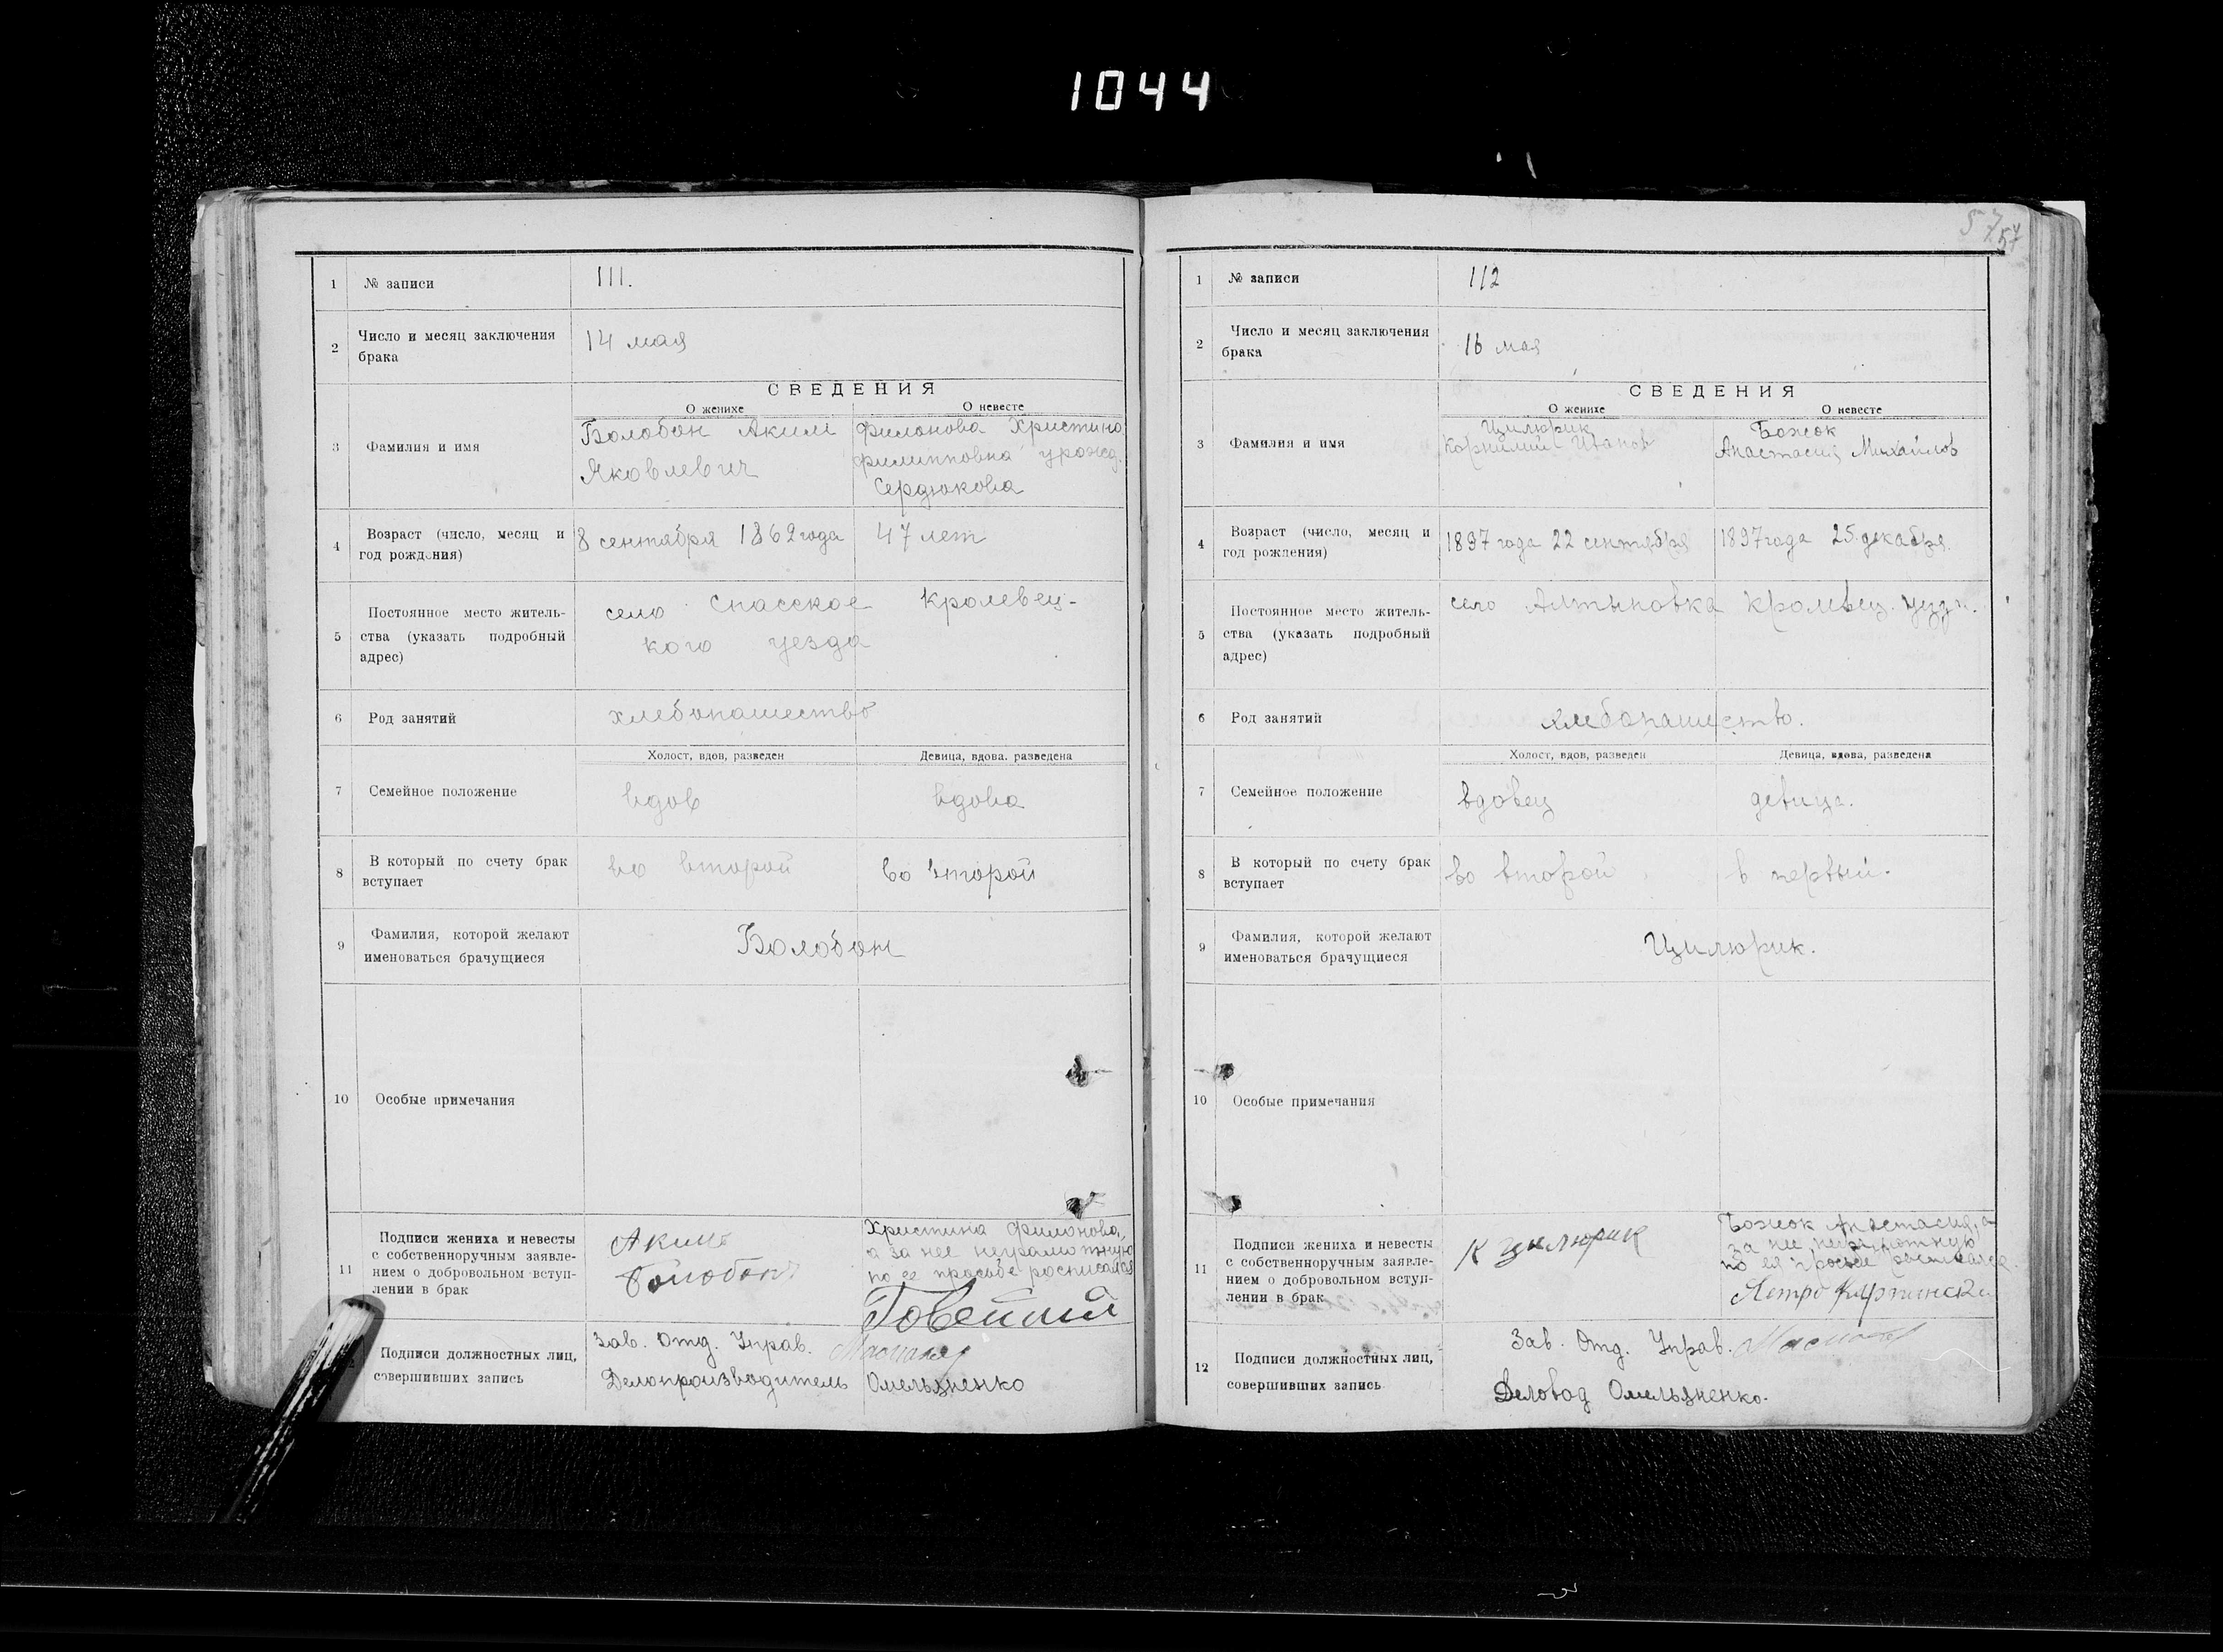 1044
57
57
1 № записи 111.
2 Число и месяц заключения брака 14 мая
СВЕДЕНИЯ
О женихе О невесте
3 Фамилия и имя
Болобон Аким
Яковлевич
Филонова Христина
Филипповна урожд.
Сердюкова
4 Возраст (число, месяц и год рождения) 8 сентября 1862 года 47 лет
5 Постоянное место жительства (указать подробный адрес)
село Спасское Кролевец-
кого уезда
6 Род занятий хлебопашество
Холост, вдов, разведен Девица, вдова. разведена
7 Семейное положение вдов вдова
8 В который по счету брак вступает во второй во второй
9 Фамилия, которой желают именоваться брачущиеся Болобон
10 Особые примечания
11 Подписи жениха и невесты с собственноручным заявлением о добровольном вступлении в брак
Аким
Болобон
Христина Филонова,
а за нее неграмотную
по ее просьбе росписался
12 Подписи должностных лиц, совершивших запись
Зав. Отд. Управ.
Делопроизводитель Омельяненко
1 № записи 112
2 Число и месяц заключения брака 16 мая
СВЕДЕНИЯ
О женихе О невесте
3 Фамилия и имя
Цилюрик
Корнилий Иванов
Божок
Анастасия Михайлов
4 Возраст (число, месяц и год рождения) 1897 года 22 сентября 1897 года 25 декабря.
5 Постоянное место жительства (указать подробный адрес)
село Алтыновка Кролевец. уезда.
6 Род занятий хлебопашество.
Холост, вдов, разведен Девица, вдова, разведена
7 Семейное положение вдовец девица.
8 В который по счету брак вступает во второй в первый.
9 Фамилия, которой желают именоваться брачущиеся Цилюрик.
10 Особые примечания
11 Подписи жениха и невесты с собственноручным заявлением о добровольном вступлении в брак
К Цилюрик
Божок Анастасия, а
за нее неграмотную
по ея просьбе росписался
Петро
12 Подписи должностных лиц, совершивших запись
Зав. Отд. Управ.
Деловод Омельяненко.